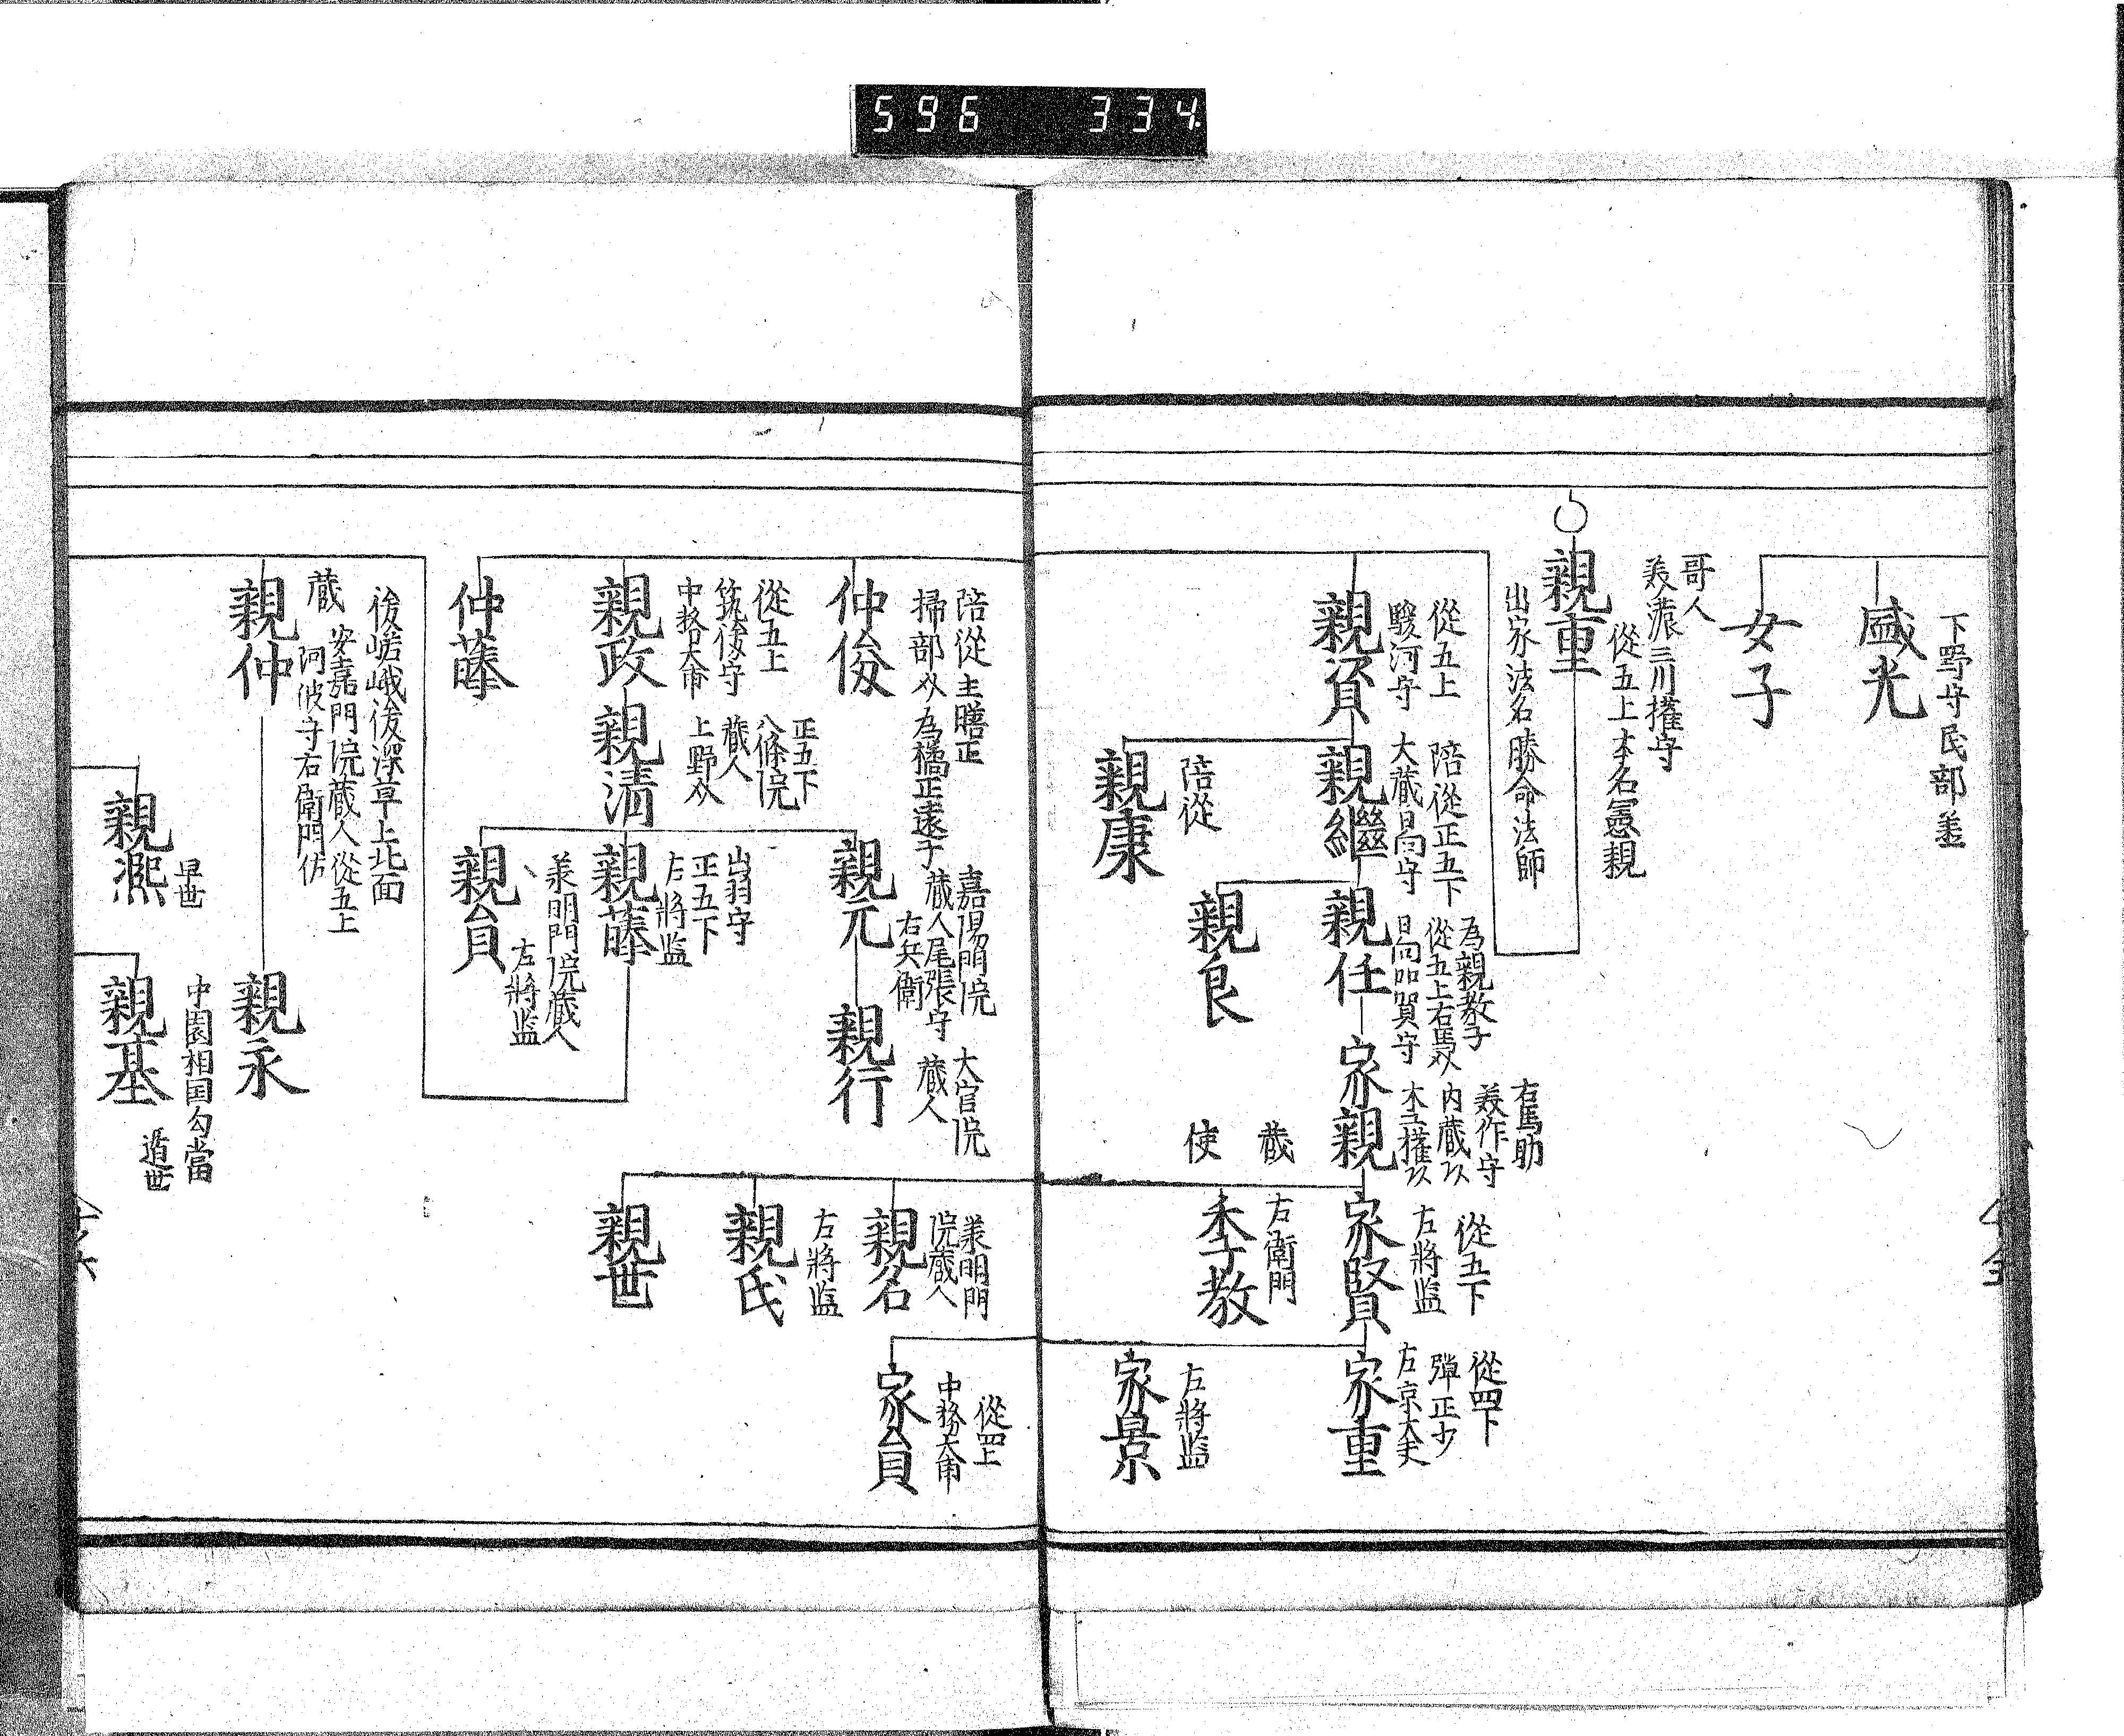 596 334
下野守民部丞
盛光
女子
哥人
美濃三川權守
從五上本名憲親
親重
出家法名勝命法師
從五上
駿河守
親賀
陪從正五下
大蔵日向守
親繼
陪從
親康
為親教子
從五上右馬父
日向加賀守
親任
親良
右馬助
美作守
内蔵
木工權
家親
蔵
使
從五下
左將監
家賢
左衛門
季教
從四下
彈正少
左京大夫
家重
左將監
家景
陪從主膳正
掃部父為橘正遠子
仲俊
嘉陽門院
蔵人尾張守
右兵衛
親元
大宮院
蔵人
親行
美明門
院蔵人
親名
左將監
親氏
親世
從四上
中務大甫
家員
從五上
筑後守
中務大甫
親政
正五下
八條院
蔵人
上野父
親清
出羽守
正五下
左將監
親藤
美明門院蔵人
左將監
親員
仲藤
後嵯峨後深草上北面
蔵
安嘉門院蔵人從五上
阿波守右衛門佐
親仲
親永
早世
親凞
中園相国勾當
遁世
親基